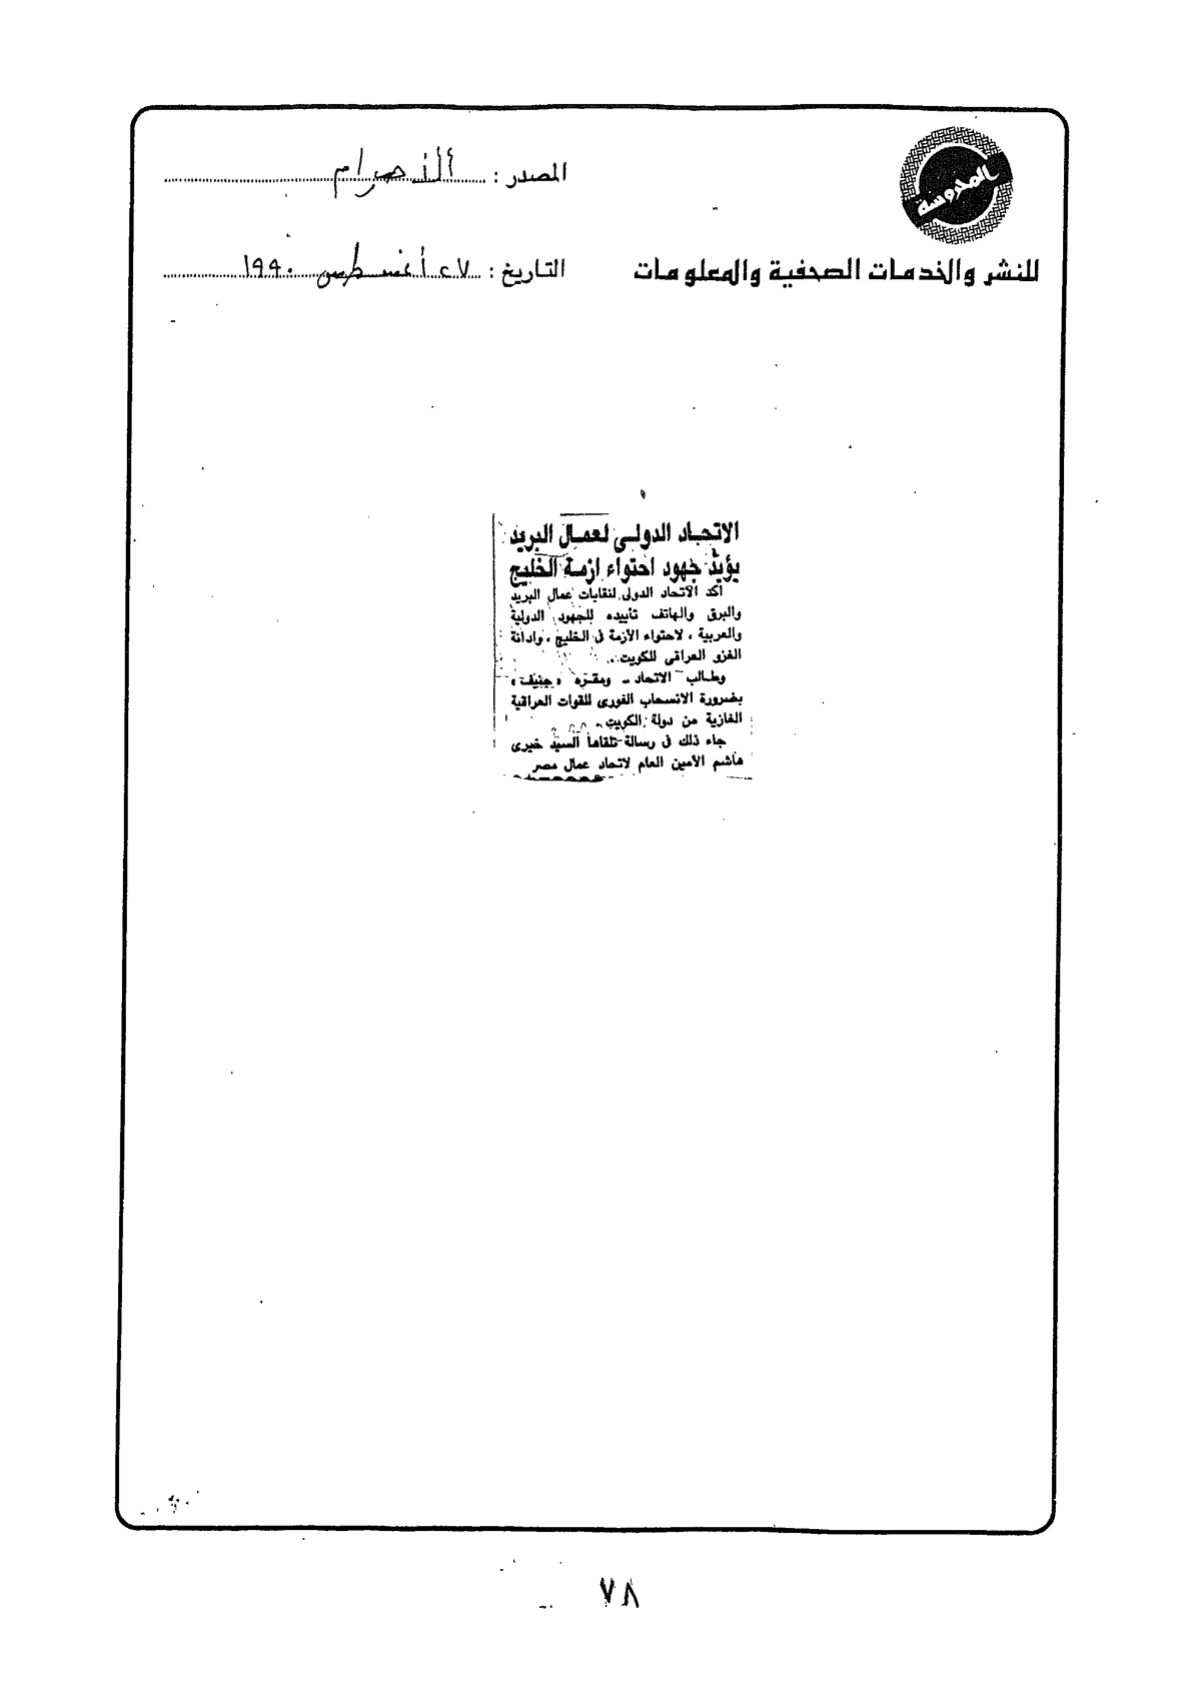 المحروسة
للنشر والخدمات الصحفية والمعلومات
المصدر :
التاريخ : ٢٧ أغسطس ١٩٩٠
الاتحاد الدولى لعمال البريد
يؤيد جهود احتواء ازمة الخليج
اكد الاتحاد الدولى لنقابات عمال البريد
والبرق والهاتف تأييده للجهود الدولية
والعربية ، لاحتواء الأزمة فى الخليج ، وادانة
الغزو العراقى للكويت .
وطالب الاتحاد - ومقره « جنيف »
بضرورة الانسحاب الفورى للقوات العراقية
الغازية من دولة الكويت .
جاء ذلك فى رسالة تلقاها السيد خيرى
هاشم الأمين العام لاتحاد عمال مصر
٧٨